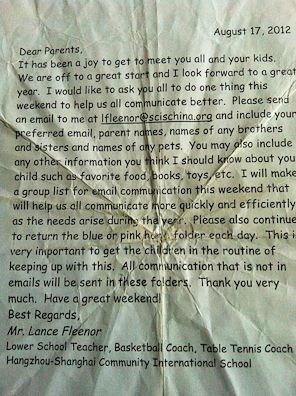 August 17, 2012
Dear Parents,
It has been a joy to get to meet you all and your kids.
We are off to a great start and I look forward to a great
year. I would like to ask you all to do one thing this
weekend to help us all communicate better. Please send
an email to me at lfleenor@scischina.org and include your
preferred email, parent names, names of any brothers
and sisters and names of any pets. You may also include
any other information you think I should know about you
child such as favorite food, books, toys, etc. I will make
a group list for email communication this weekend that
will help us all communicate more quickly and efficiently
as the needs arise during the year. Please also continue
to return the blue or pink folder each day. This i
very important to get the children in the routine of
keeping up with this. All communication that is not in
emails will be sent in these folders. Thank you very
much. Have a great weekend!
Best Regards,
Mr. Lance Fleenor
Lower School Teacher, Basketball Coach, Table Tennis Coach
Hangzhou-Shanghai Community International School